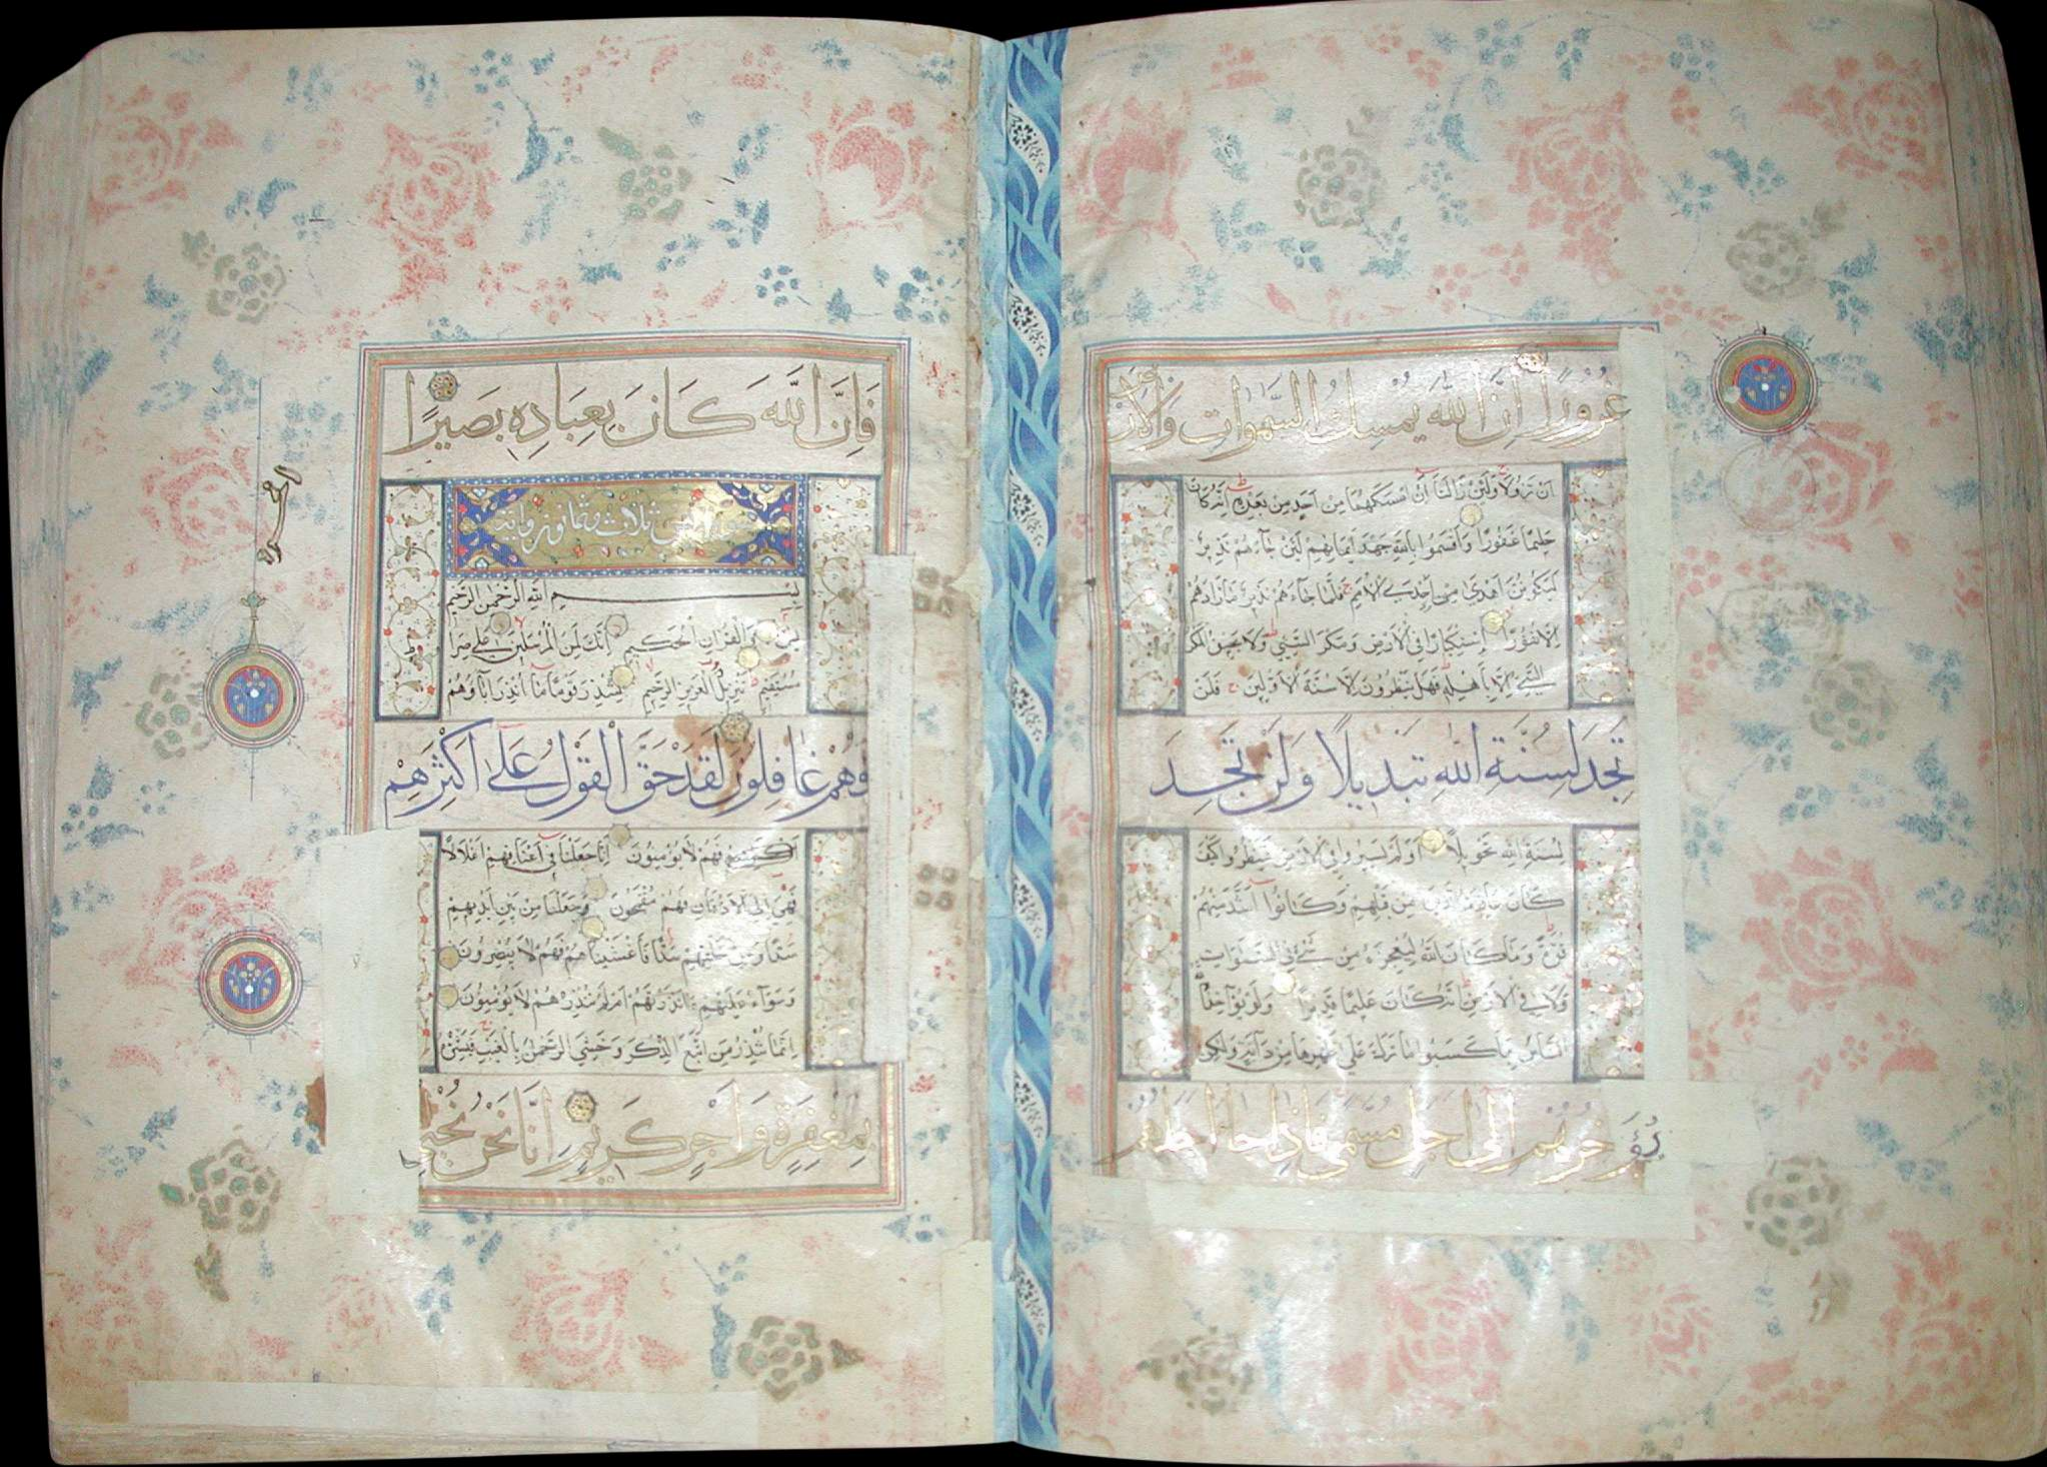 غُرُورًا اِنَّ اللّٰهَ يُمْسِكُ السَّمٰوَاتِ وَالْاَرْضَ
اَنْ تَزُولَا وَلَئِنْ زَالَتَا اَنْ اَمْسَكَهُمَا مِنْ اَحَدٍ مِنْ بَعْدِهِ اِنَّهُ كَانَ
حَلِيمًا غَفُورًا وَاَقْسَمُوا بِاللّٰهِ جَهْدَ اَيْمَانِهِمْ لَئِنْ جَاءَهُمْ نَذِيرٌ
لَيَكُونُنَّ اَهْدٰى مِنْ اِحْدَى الْاُمَمِ فَلَمَّا جَاءَهُمْ نَذِيرٌ مَا زَادَهُمْ
اِلَّا نُفُورًا اسْتِكْبَارًا فِي الْاَرْضِ وَمَكْرَ السَّيِّئِ وَلَا يَحِيقُ الْمَكْرُ
السَّيِّئُ اِلَّا بِاَهْلِهِ فَهَلْ يَنْظُرُونَ اِلَّا سُنَّةَ الْاَوَّلِينَ فَلَنْ
تَجِدَ لِسُنَّةِ اللّٰهِ تَبْدِيلًا وَلَنْ تَجِدَ
لِسُنَّةِ اللّٰهِ تَحْوِيلًا اَوَلَمْ يَسِيرُوا فِي الْاَرْضِ فَيَنْظُرُوا كَيْفَ
كَانَ عَاقِبَةُ الَّذِينَ مِنْ قَبْلِهِمْ وَكَانُوا اَشَدَّ مِنْهُمْ
قُوَّةً وَمَا كَانَ اللّٰهُ لِيُعْجِزَهُ مِنْ شَيْءٍ فِي السَّمٰوَاتِ
وَلَا فِي الْاَرْضِ اِنَّهُ كَانَ عَلِيمًا قَدِيرًا وَلَوْ يُؤَاخِذُ اللّٰهُ
النَّاسَ بِمَا كَسَبُوا مَا تَرَكَ عَلٰى ظَهْرِهَا مِنْ دَابَّةٍ وَلٰكِنْ
يُؤَخِّرُهُمْ اِلٰى اَجَلٍ مُسَمًّى فَاِذَا جَاءَ اَجَلُهُمْ
فَاِنَّ اللّٰهَ كَانَ بِعِبَادِهِ بَصِيرًا
ثلاث وثمانون اية
بِسْمِ اللّٰهِ الرَّحْمٰنِ الرَّحِيمِ
يٰسٓ وَالْقُرْاٰنِ الْحَكِيمِ اِنَّكَ لَمِنَ الْمُرْسَلِينَ عَلٰى صِرَاطٍ
مُسْتَقِيمٍ تَنْزِيلَ الْعَزِيزِ الرَّحِيمِ لِتُنْذِرَ قَوْمًا مَا اُنْذِرَ اٰبَاؤُهُمْ
فَهُمْ غَافِلُونَ لَقَدْ حَقَّ الْقَوْلُ عَلٰى اَكْثَرِهِمْ
فَهُمْ لَا يُؤْمِنُونَ اِنَّا جَعَلْنَا فِي اَعْنَاقِهِمْ اَغْلَالًا
فَهِيَ اِلَى الْاَذْقَانِ فَهُمْ مُقْمَحُونَ وَجَعَلْنَا مِنْ بَيْنِ اَيْدِيهِمْ
سَدًّا وَمِنْ خَلْفِهِمْ سَدًّا فَاَغْشَيْنَاهُمْ فَهُمْ لَا يُبْصِرُونَ
وَسَوَاءٌ عَلَيْهِمْ ءَاَنْذَرْتَهُمْ اَمْ لَمْ تُنْذِرْهُمْ لَا يُؤْمِنُونَ
اِنَّمَا تُنْذِرُ مَنِ اتَّبَعَ الذِّكْرَ وَخَشِيَ الرَّحْمٰنَ بِالْغَيْبِ فَبَشِّرْهُ
بِمَغْفِرَةٍ وَاَجْرٍ كَرِيمٍ اِنَّا نَحْنُ نُحْيِي